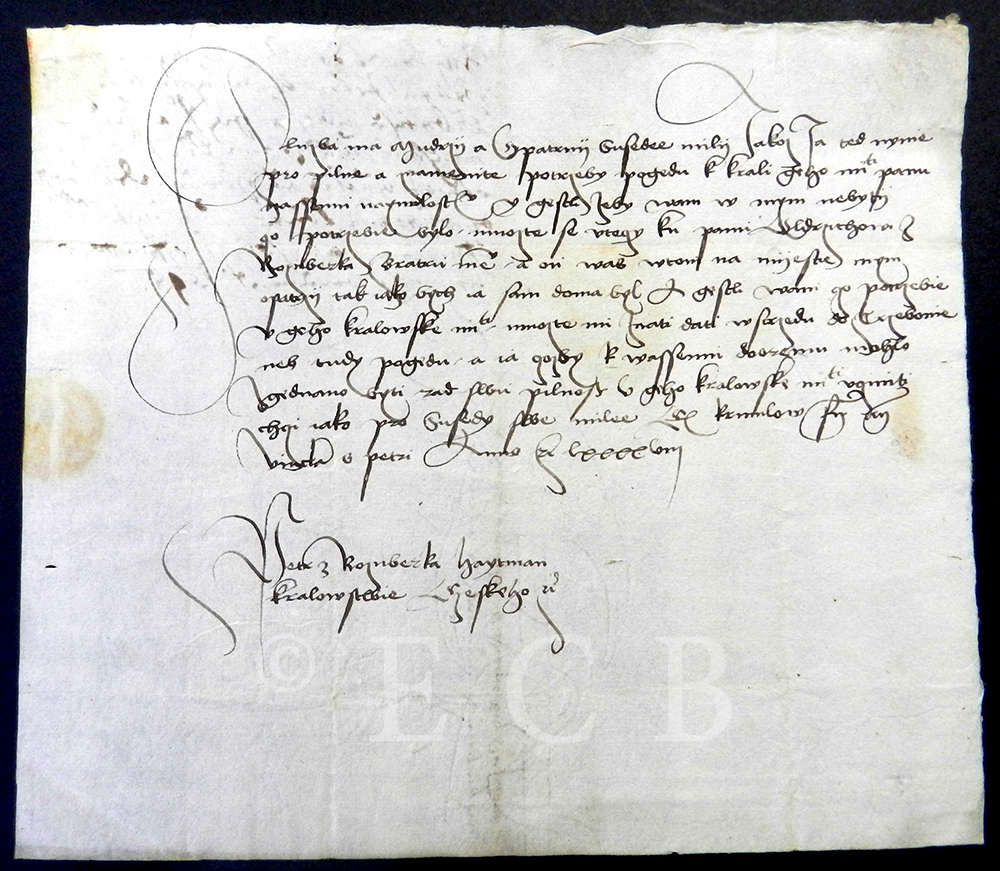 Sluzba ma Mudrzij a Opatrnij Susedee milij Jakoz Ja ted nynie
pro pilne a znamenite potrzeby pogedu k krali geho mti panu
nassemu naymilostiw a gestli zeby wam w mym nebyti
czo potrzebie bylo muozte se vteczy ku panu Oldrzichowi z
Rozmberka Bratru me a on was wtom na miestie mym
opatrzij tak iako bych ia sam doma byl A gestli wam czo potrzebie
v geho kralowske mti muozte mi znati dati wstrzedu do Trzebonie
neb tudy pogedu a ia czozby k wassemu dobremu mohlo
zgednano byti rad swu pilnost v geho kralowske mti vczinit
chczi iako pro Susedy swe milee Ex krumlow
Vincla S petri Anno LXXXXVIII
Petr z Rozmberka haytman
kralowstwie Czeskeho
© ECB